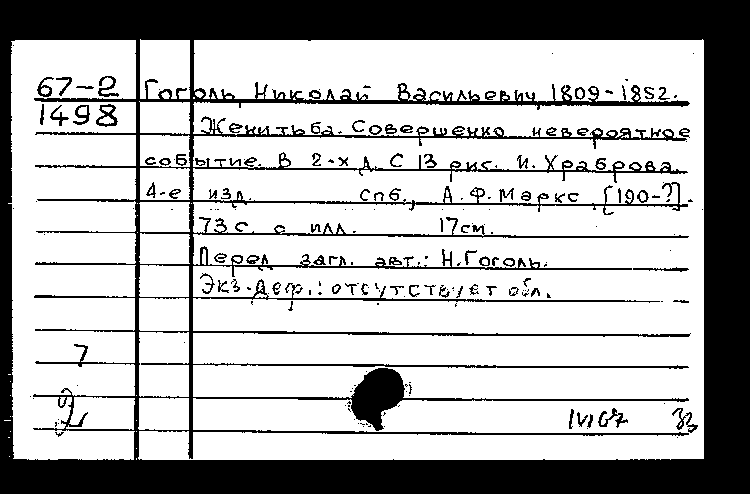 67-2 Гоголь, Николай Васильевич, 1809-1852.
1498
Женитьба. Совершенно невероятное
событие. В 2-х д. С 13 рис. И. Храброва.
4-е изд. Спб., А.Ф. Маркс, [190-?].
73 с. с илл. 17см.
Перед загл. авт.: Н.Гоголь.
Экз. деф.: отсутствует обл.
7
2
IVI67